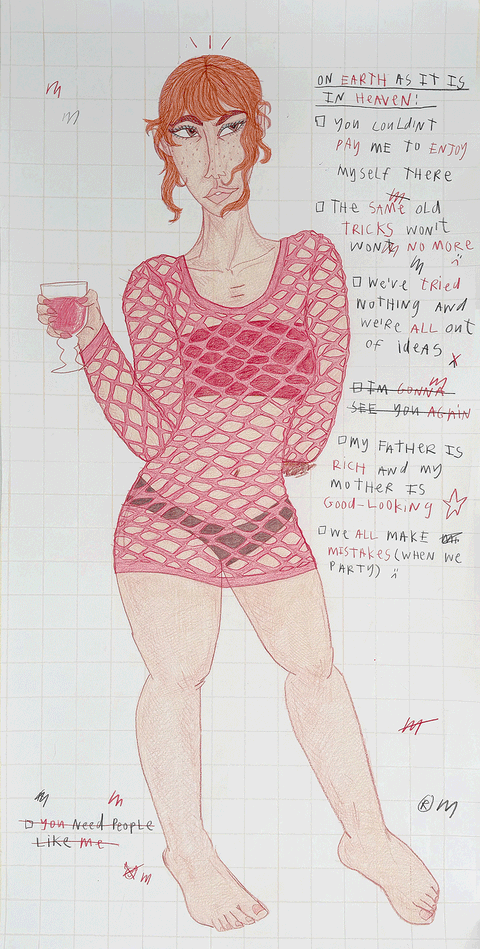 ON EARTH AS IT IS
IN HEAVEN:
YOU COULDN'T
PAY ME TO ENJOY
MYSELF THERE
THE SAME OLD
TRICKS WON'T
WORK NO MORE
WE'VE TRIED
NOTHING AND
WE'RE ALL OUT
OF IDEAS
I'M GONNA
SEE YOU AGAIN
MY FATHER IS
RICH AND MY
MOTHER IS
GOOD-LOOKING
WE ALL MAKE
MISTAKES (WHEN WE
PARTY)
YOU NEED PEOPLE
LIKE ME
®